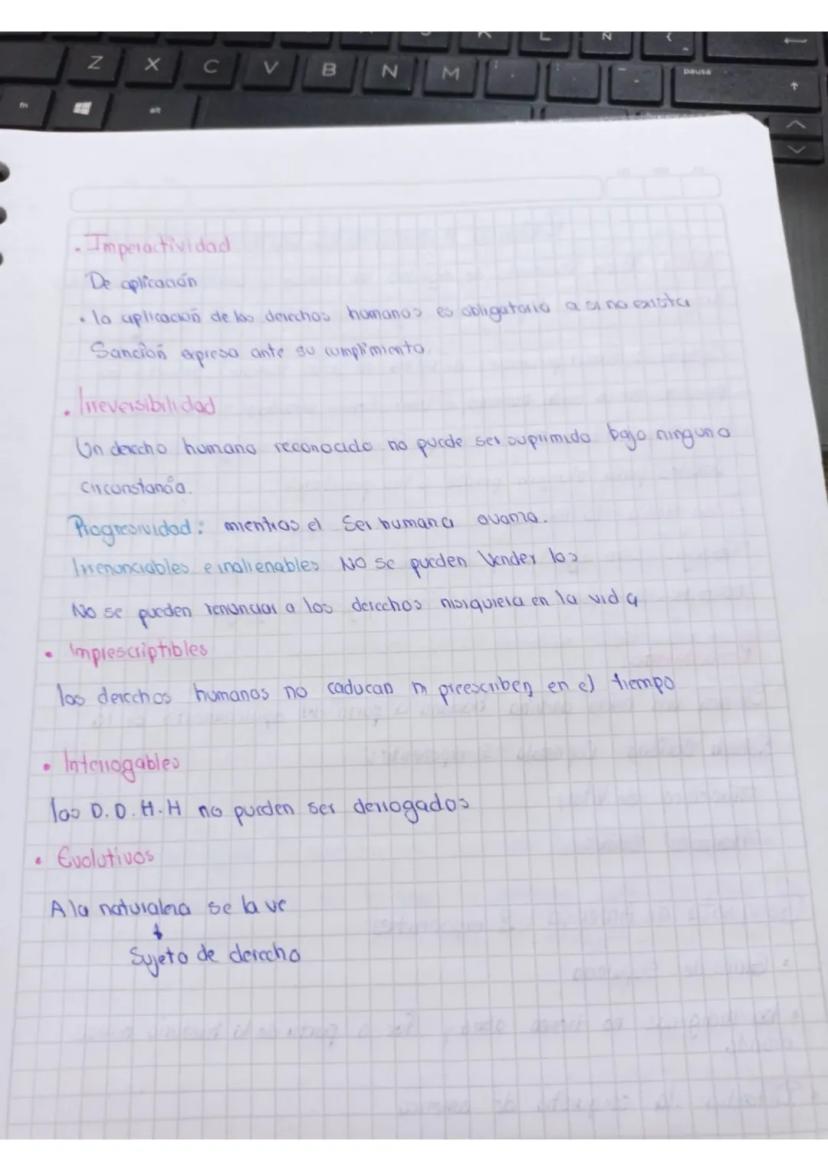 Z X C V B N M
pausa
fn alt
• Imperactividad
De aplicación
• la aplicación de los derechos humanos es obligatoria a si no exista
Sanción expresa ante su cumplimiento.
• Irreversibilidad
Un derecho humano reconocido no puede ser suprimido bajo ninguna
circunstancia.
Progresividad: mientras el Ser humana avanza.
Irrenunciables e inalienables NO se pueden Vender los
No se pueden renunciar a los derechos nisiquiera en la vida
• Imprescriptibles
los derechos humanos no caducan ni preescriben en el tiempo
• Interrogables
los D.D.H.H no pueden ser derrogados
• Evolutivos
A la naturaleza se la ve
Sujeto de derecho